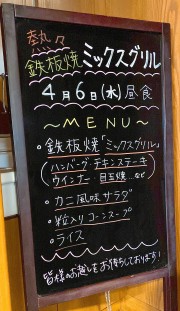 熱々
鉄板焼ミックスグリル
4月6日(水)昼食
～MENU～
・鉄板焼「ミックスグリル」
(ハンバーグ・チキンステーキ
ウインナー・目玉焼…など)
・カニ風味サラダ
・粒入りコーンスープ
・ライス
皆様のお越しをお待ちしております!